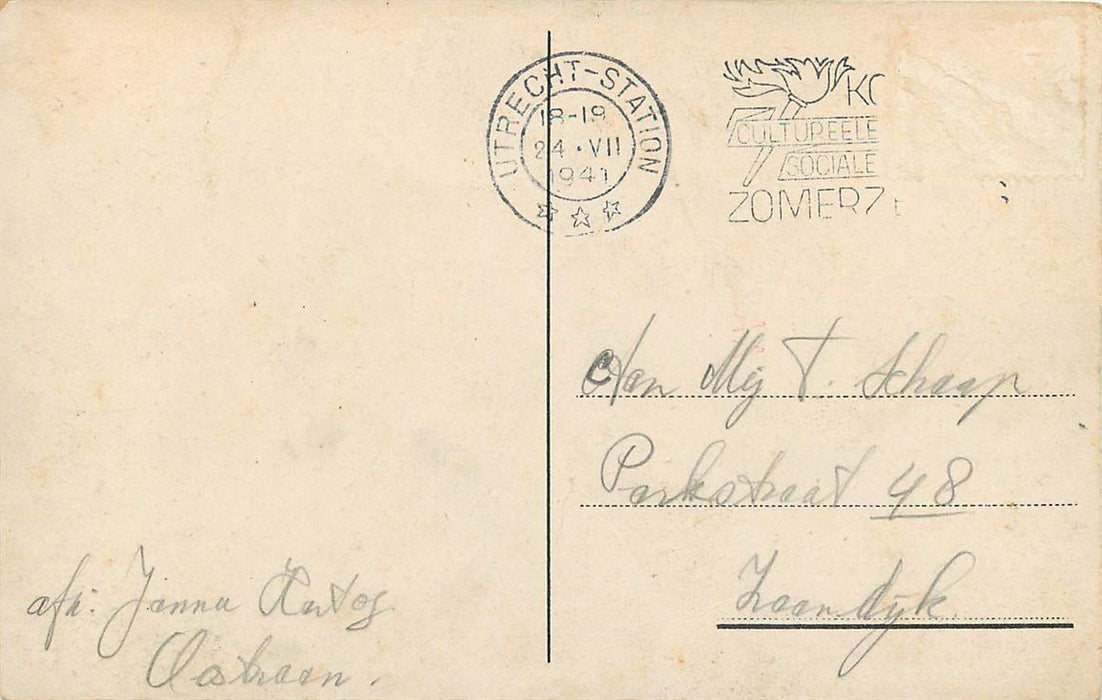 UTRECHT-STATION
18-19
24 · VII
1941
CULTUREELE
SOCIALE
ZOMERZ
Aan Mej T. Schaap
Parkstraat 48
Zaandyk
afz: Janna Hartog